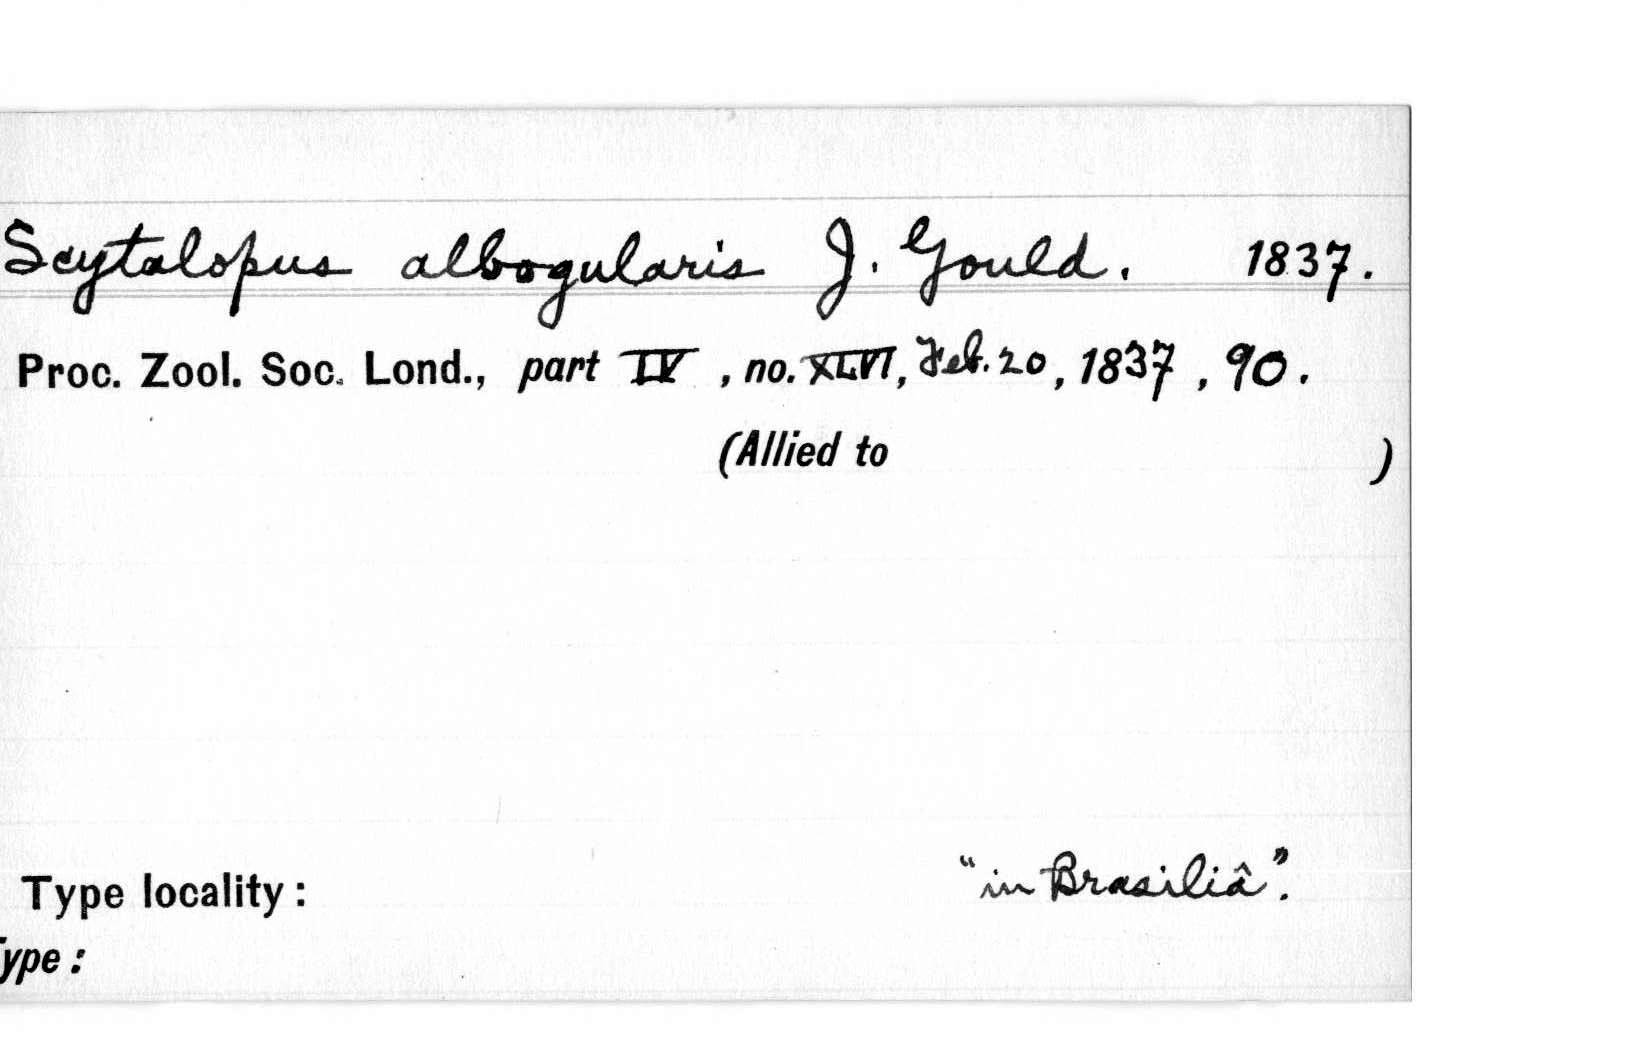 Scytalopus albogularis J. Gould. 1837.
Proc. Zool. Soc. Lond., part IV, no. XLVI, Feb. 20, 1837, 90.
(Allied to )
Type locality: "in Brasiliâ".
Type: